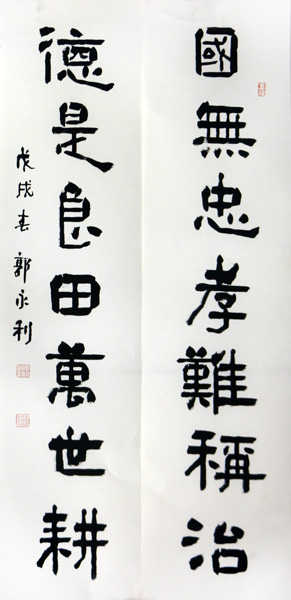 國無忠孝難稱治
德是良田萬世耕
戊戌春 郭永利